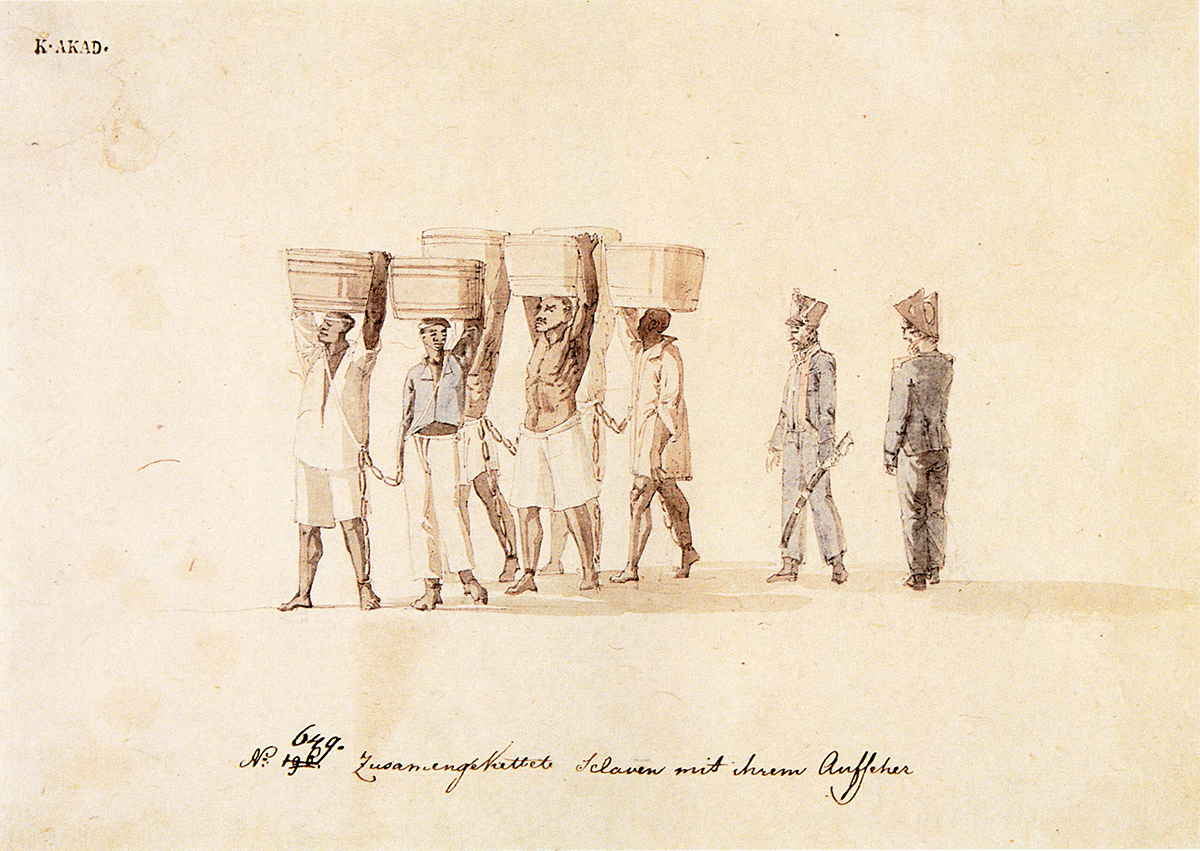 K·AKAD.
649.
Nº Zusamengekettete Sclaven mit ihrem Aufseher